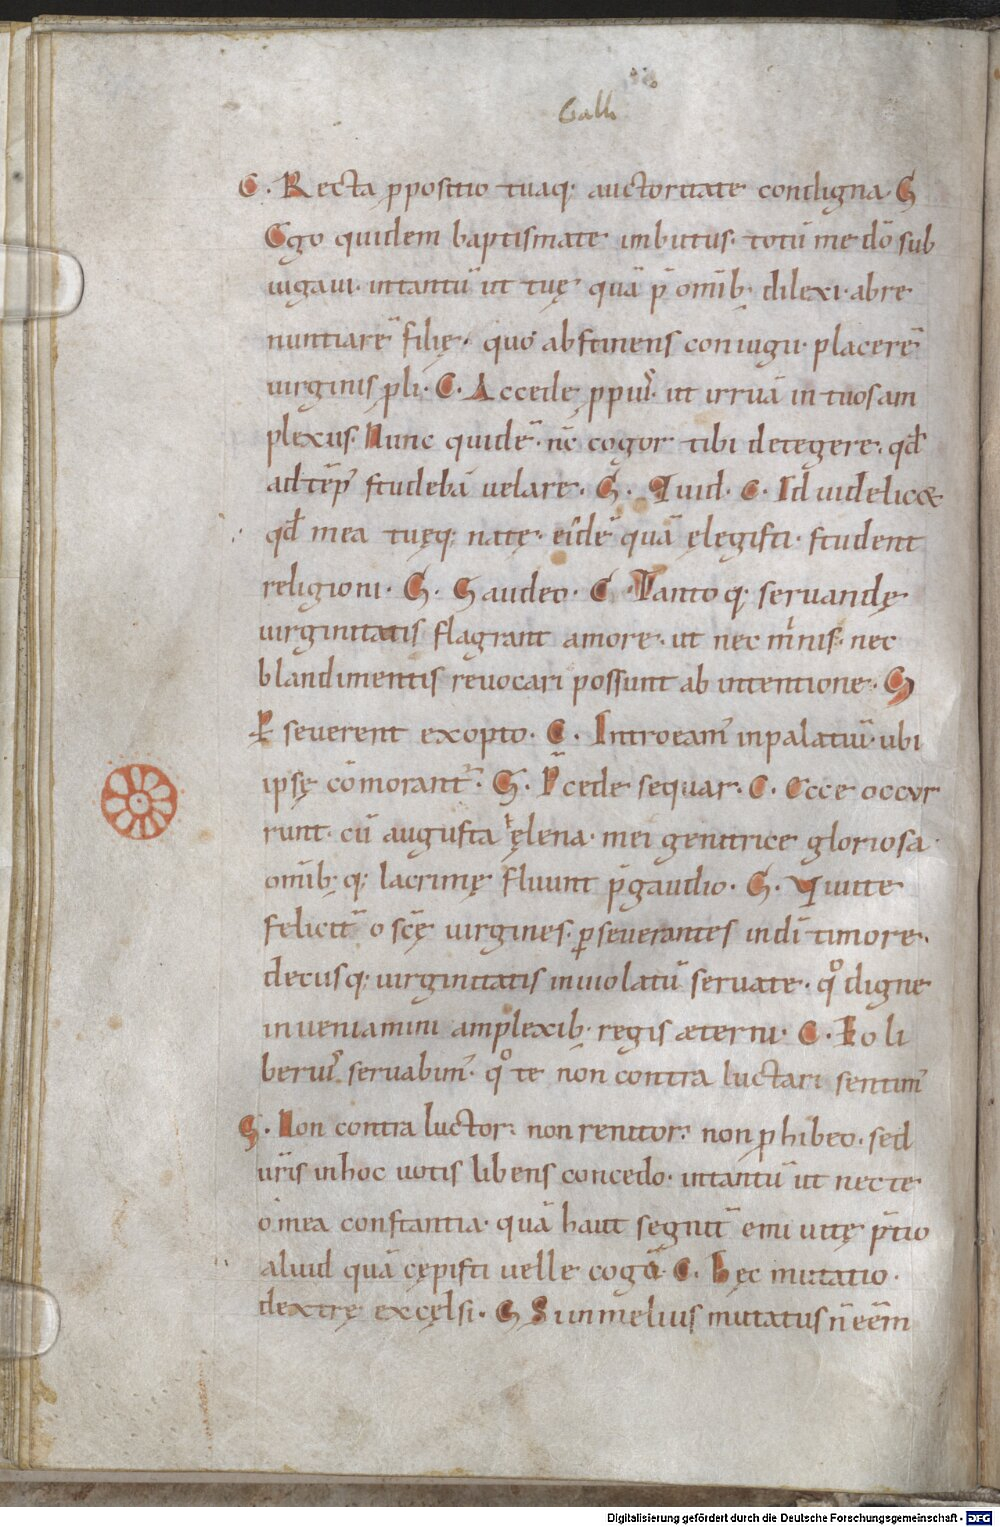 Galli
C. Recta ꝓpositio tuaq; auctoritate condigna. G
Ego quidem baptismate imbutus. totū me dō sub
iugaui. intantū ut tuę quā p̄ om̄ib; dilexi. abre
nuntiarē filię. quo abstinens coniugii. placerē
uirginis ꝓli. C. Accede ppiꝰ. ut irruā in tuos am
plexus. Nunc quidē. nc̄ cogor tibi detegere. qd̄
ad tēp̄ studebā uelare. G. Quid. C. Id uidelic&
qd̄ mea tuęq; natę. eidē quā ęlegisti. student
religioni. G. Gaudeo. C. Tantoq; seruandę
uirginitatis flagrant amore. ut nec minis. nec
blandimentis reuocari possunt ab intentione. G
Ꝑseuerent exopto. C. Introeam̄ in palatiū. ubi
ipsę cōmorant̄. G. P̄cede sequar. C. Ecce occur
runt. cū augusta ęlena. mei genitrice gloriosa.
om̄ib; q; lacrimę fluunt p̄ gaudio. G. Viuite
feliciť o scę̄ uirgines. ꝑseuerantes in dī timore.
decusq; uirginitatis inuiolatū seruate. qͦ digne
inueniamini amplexib; regis æterni. C. Eo li
beriꝰ seruabim̄. qͦ te non contra luctari sentim̄
G. Non contra luctor. non renitor. non ꝓhibeo. sed
ur̄is in hoc uotis libens concedo. intantū ut nec te
o mea constantia. quā haut segnit̄ emi uitę p̄tio
aliud quā cępisti uelle cogā. C. Hęc mutatio.
dextrę excęlsi. G Si in melius mutatus n̄ eēm
Digitalisierung gefördert durch die Deutsche Forschungsgemeinschaft - DFG